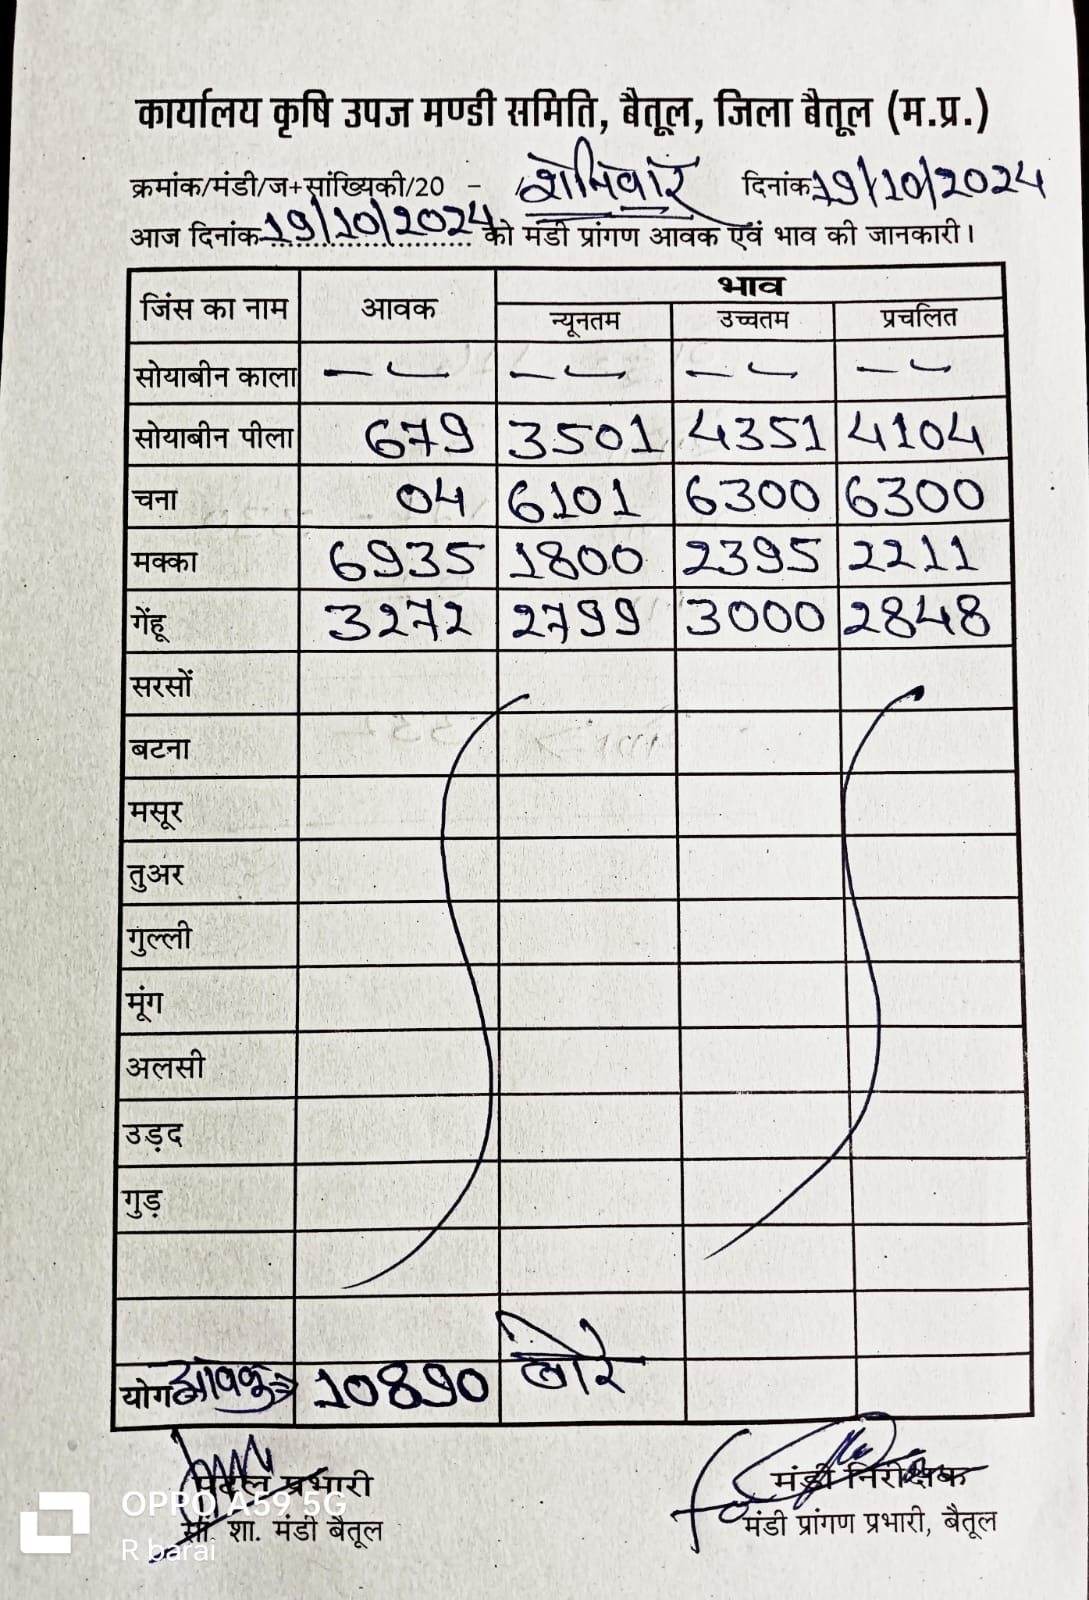 कार्यालय कृषि उपज मण्डी समिति, बैतूल, जिला बैतूल (म.प्र.)
क्रमांक/मंडी/ज+सांख्यिकी/20 - / शनिवार दिनांक 19/10/2024
आज दिनांक 19/10/2024 को मंडी प्रांगण आवक एवं भाव की जानकारी।
जिंस का नाम आवक भाव
न्यूनतम उच्चतम प्रचलित
सोयाबीन काला — — — — — — — —
सोयाबीन पीला 679 3501 4351 4104
चना 04 6101 6300 6300
मक्का 6935 1800 2395 2211
गेंहू 3272 2799 3000 2848
सरसों
बटना
मसूर
तुअर
गुल्ली
मूंग
अलसी
उड़द
गुड़
योग आवक 10890 बोरे
प्रभारी मंडी निरीक्षक
शा. मंडी बैतूल मंडी प्रांगण प्रभारी, बैतूल
OPPO A59 5G
R barai